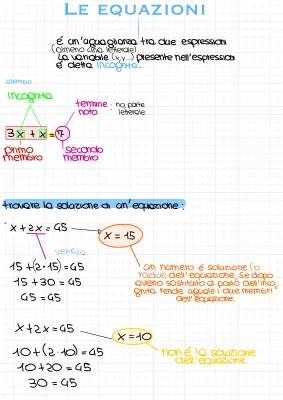 LE EQUAZIONI
è un'uguaglianza tra due espressioni
(almeno una letterale)
La variabile (x,y...) presente nell'espressione
è detta incognita.
esempio
incognita
termine noto → no parte letterale
3x + x = 7
primo membro
secondo membro
trovare la soluzione di un'equazione:
x + 2x = 45
x = 15
verifica
15 + (2 · 15) = 45
15 + 30 = 45
45 = 45
un numero è soluzione (o
radice) dell'equazione se dopo
averlo sostituito al posto dell'inco
gnita rende uguali i due membri
dell'equazione.
x + 2x = 45
x = 10
10 + (2 · 10) = 45
10 + 20 = 45
30 = 45
non è la soluzione
dell'equazione